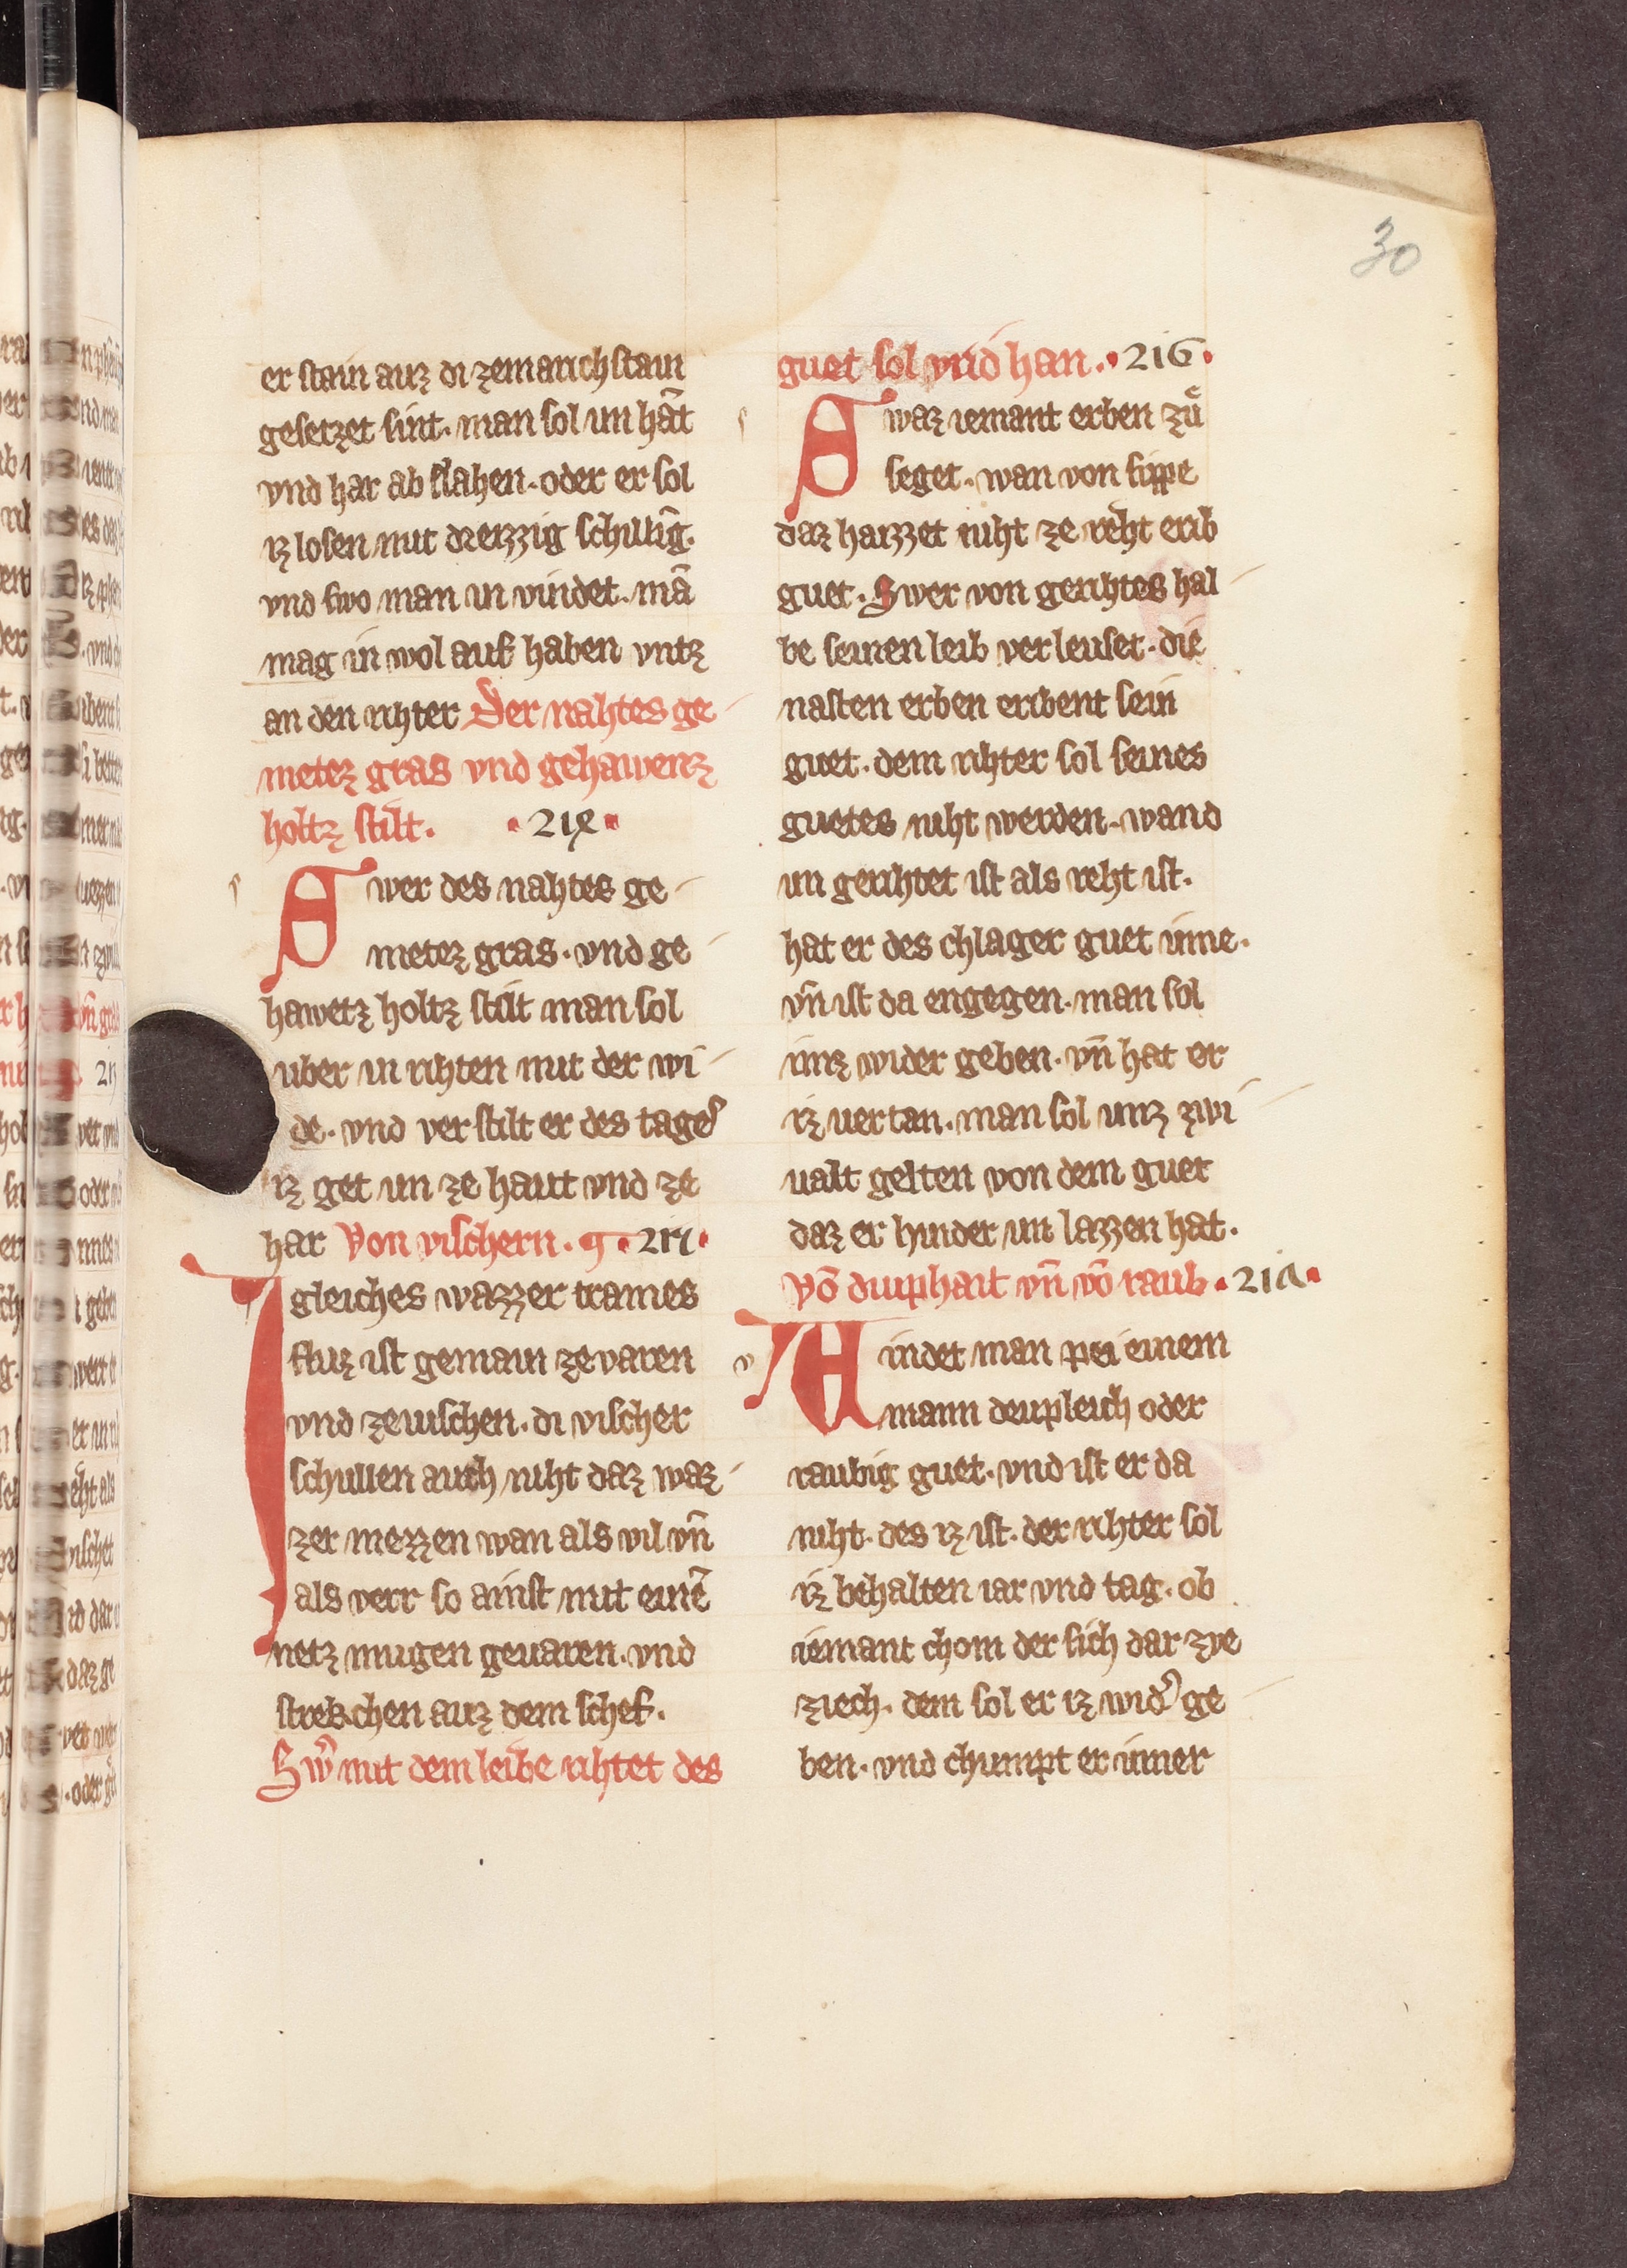 30
er stain auz di zemarichstain
gesetzet sint. man sol im hāt
vnd har ab slahen. oder er sol
iz losen mit dreizzig schillinḡ.
vnd swo man in vindet. mā
mag in wol auf haben vntz
an den rihter Der nahtes ge
metez gras vnd gehawenz
holtz stilt. · 21ꝩ ·
s Swer des nahtes ge
metez gras. vnd ge
hawetz holtz stilt man sol
uber in rihten mit der wi
de. vnd verstilt er des tages
iz get im ze haut vnd ze
har Von vischern. · 215 ·
Igleiches wazzer trames
fluz ist gemain ze varen
vnd ze vischen. di vischer
schullen auch niht daz waz
zer mezzen wan als vil vn̄
als verr so ainst mit einē
netz mugen geuaren. vnd
strekchen auz dem schef.
Sw̄ mit dem leibe rihtet des
guet sol vrid han. · 216 ·
s Swaz iemant erben zuͤ
seget. wan von sippe
daz haizzet niht ze reht erib
guet. Swer von gerihtes hal
be seinen leib verleuset. die
nasten erben eribent sein
guet. dem rihter sol seines
guetes niht werden. wand
im gerihtet ist als reht ist.
hat er des chlager guet inne.
vn̄ ist da engegen. man sol
imz wider geben. vn̄ hat er
iz uertan. man sol imz zwi
ualt gelten von dem guet
daz er hinder im lazzen hat.
Vō diuphait vn̄ vō raub. · 217 ·
v Vindet man pei einem
mann deupleich oder
raubig guet. vnd ist er da
niht. des iz ist. der rihter sol
iz behalten iar vnd tag. ob
iemant chom der sich dar zve
ziech. dem sol er iz wid̉ ge
ben. vnd chumpt er imer